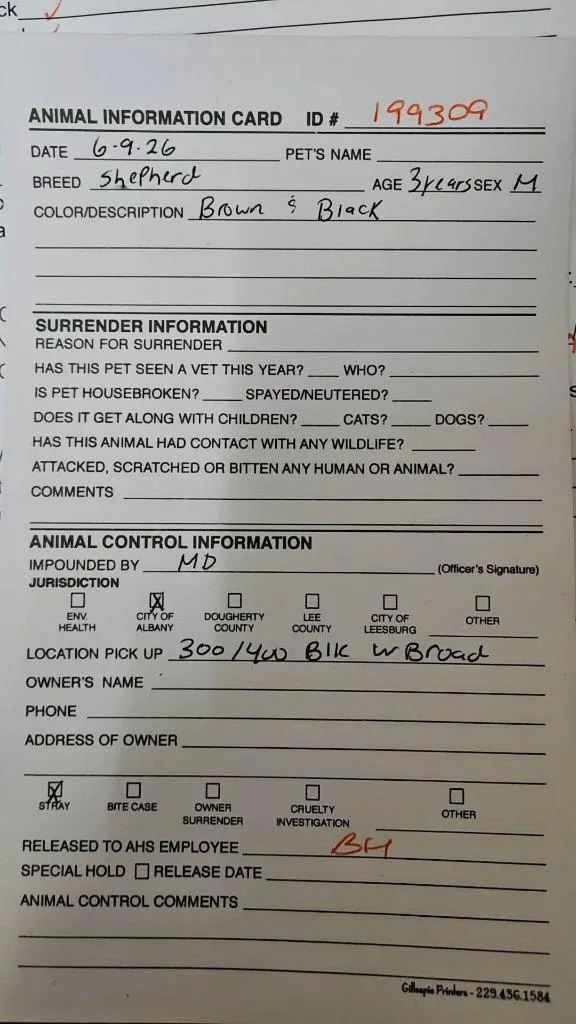 ck
ANIMAL INFORMATION CARD ID # 199309
DATE 6-9-26 PET'S NAME
BREED Shepherd AGE 3years SEX M
COLOR/DESCRIPTION Brown & Black
SURRENDER INFORMATION
REASON FOR SURRENDER
HAS THIS PET SEEN A VET THIS YEAR? WHO?
IS PET HOUSEBROKEN? SPAYED/NEUTERED?
DOES IT GET ALONG WITH CHILDREN? CATS? DOGS?
HAS THIS ANIMAL HAD CONTACT WITH ANY WILDLIFE?
ATTACKED, SCRATCHED OR BITTEN ANY HUMAN OR ANIMAL?
COMMENTS
ANIMAL CONTROL INFORMATION
IMPOUNDED BY MD (Officer's Signature)
JURISDICTION
ENV. HEALTH CITY OF ALBANY DOUGHERTY COUNTY LEE COUNTY CITY OF LEESBURG OTHER
LOCATION PICK UP 300/400 Blk W Broad
OWNER'S NAME
PHONE
ADDRESS OF OWNER
STRAY BITE CASE OWNER SURRENDER CRUELTY INVESTIGATION OTHER
RELEASED TO AHS EMPLOYEE BH
SPECIAL HOLD RELEASE DATE
ANIMAL CONTROL COMMENTS
Gillespie Printers - 229.436.1584